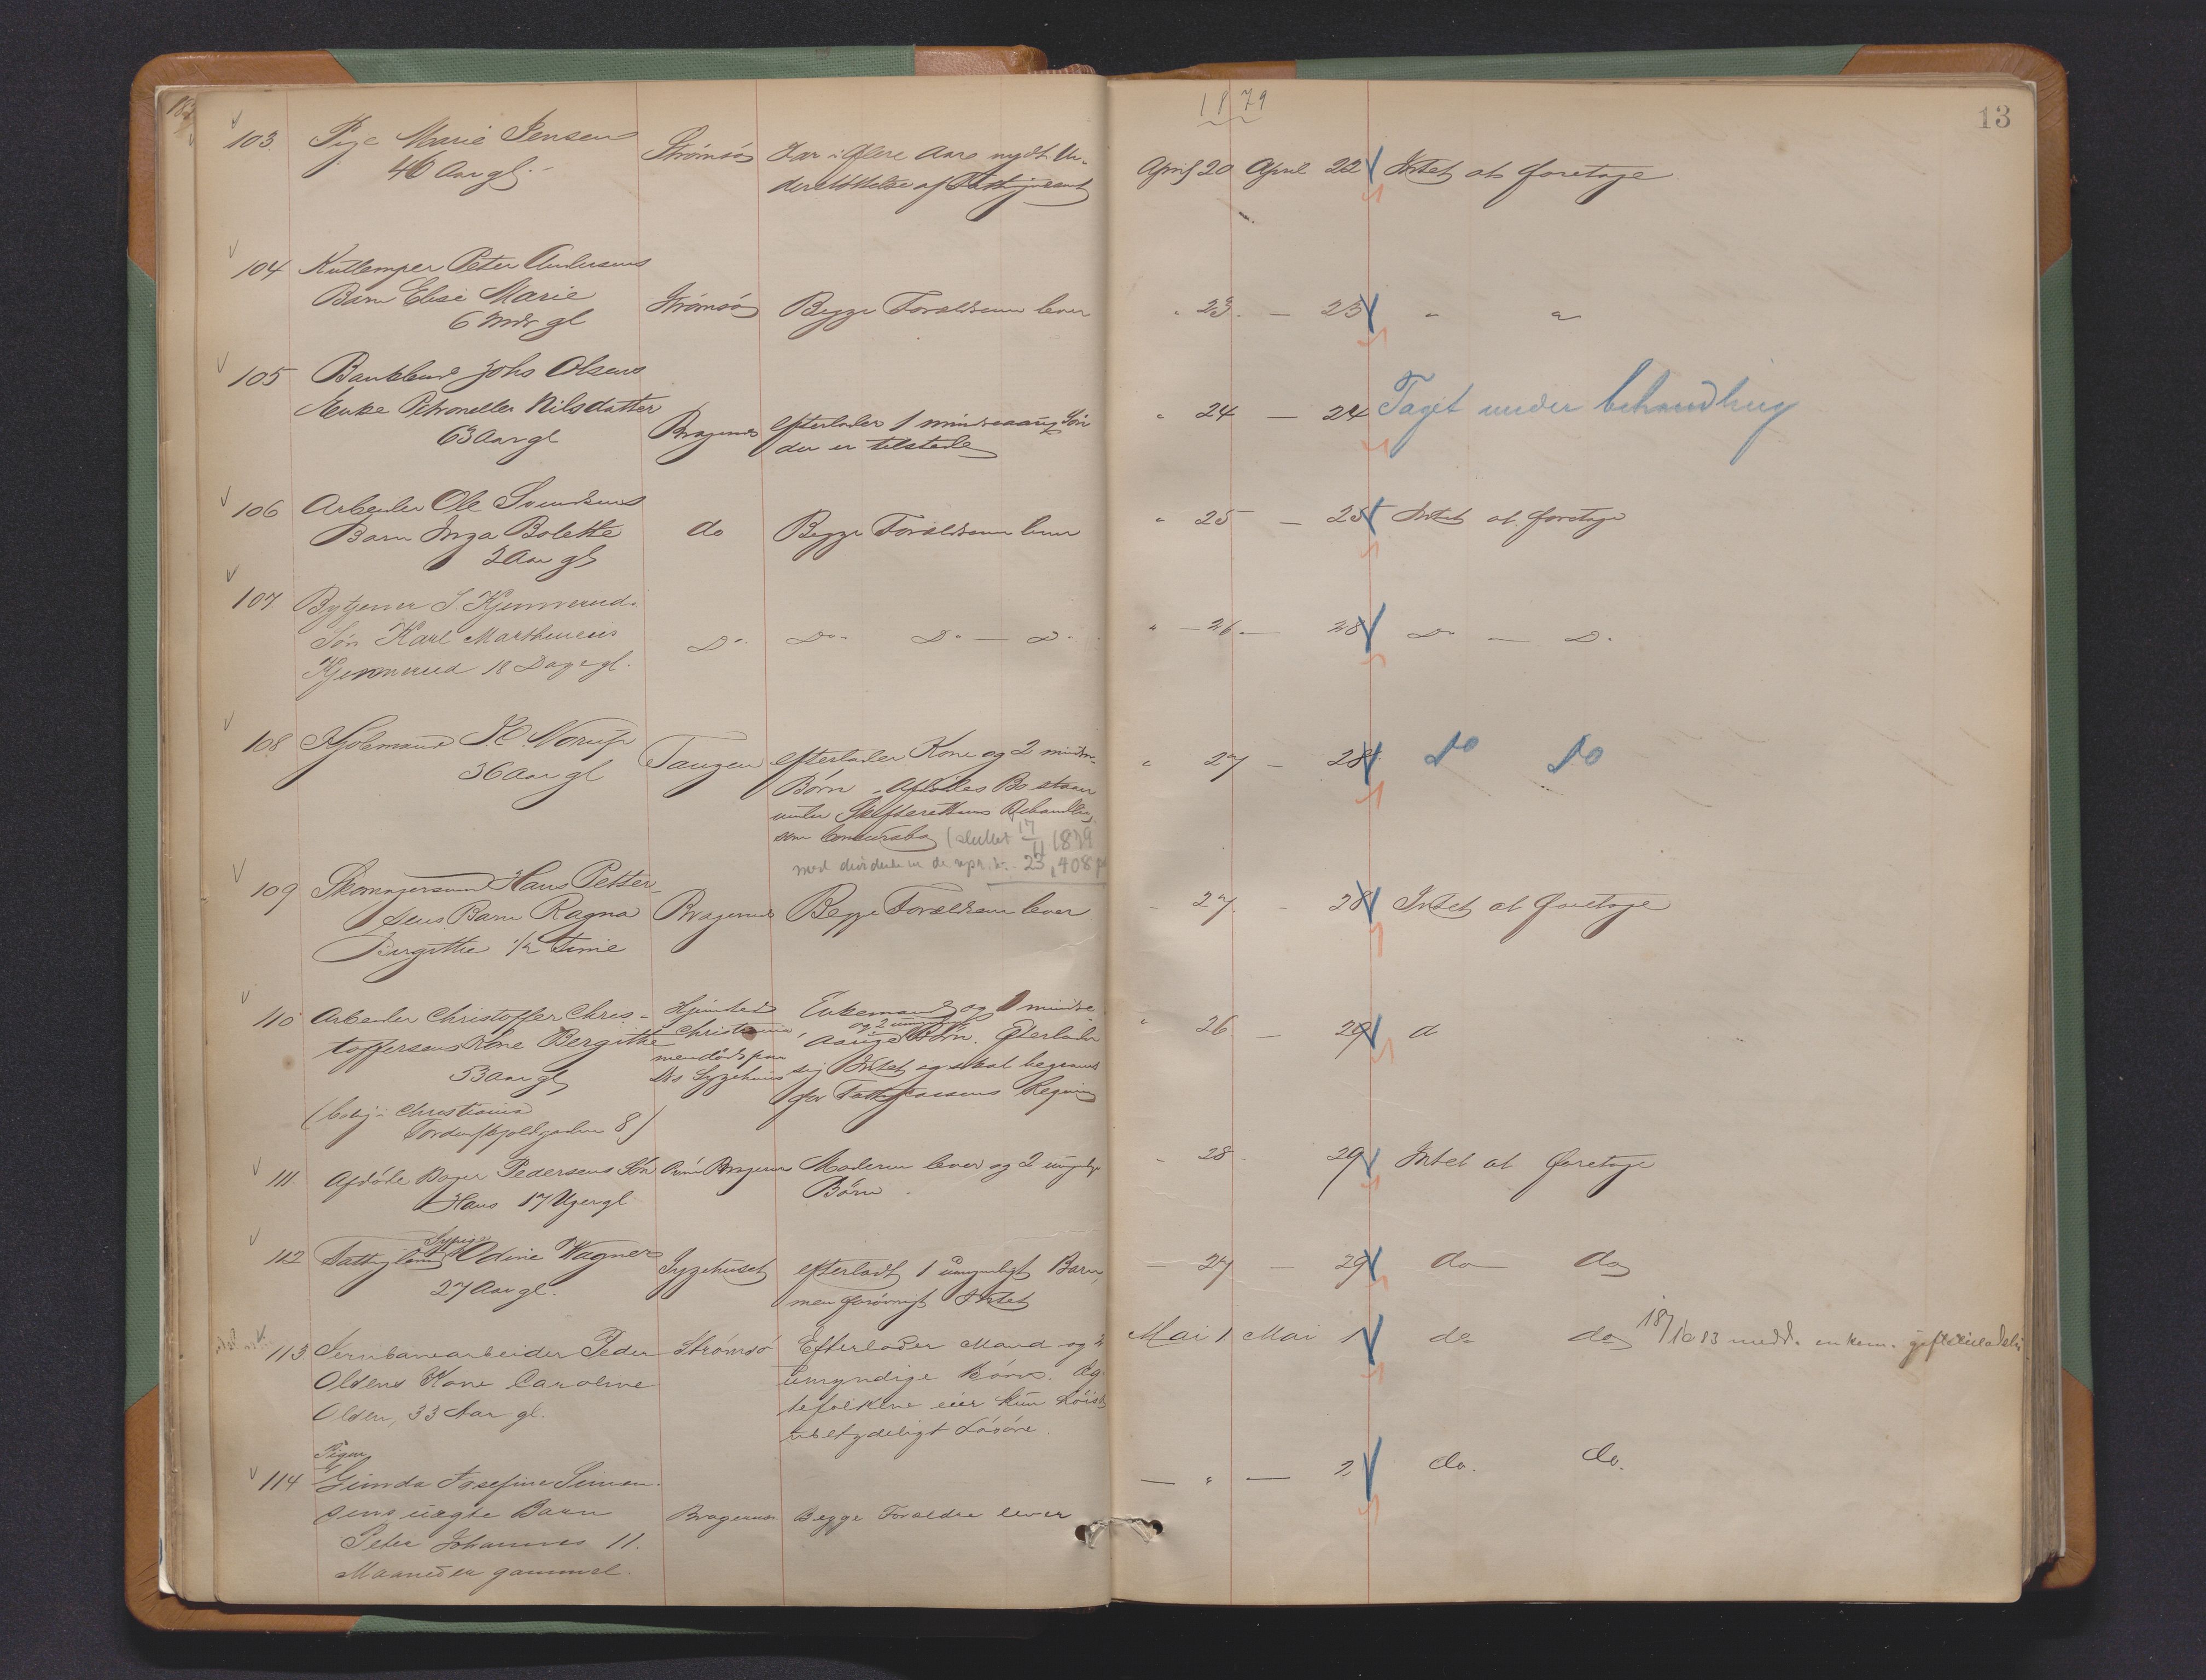 1879
13
103. Pige Marie Jensen
46 Aar gl.
Strømsø
Har i flere Aar nydt Un-
derstøttelse af Fattigvæsenet
April 20 April 22 Intet at foretage
104 Kullemper Peter Andersens
Barn Elise Marie
6 Mdr gl
Strømsø
Begge Forældrene lever
" 23. — 23 " "
105 Bankbud Johs Olsens
Enke Petronelle Nilsdatter
63 Aar gl
Bragernes
efterlader 1 mindreaarig Søn
der er tilstede
" 24 — 24 Taget under behandling
106 Arbeider Ole Svendsens
Barn Inga Bolette
2 Aar gl
do
Begge Forældrene lever
" 25 — 25 Intet at foretage
107 Bytjener S. Kjennerud.
Søn Karl Marthinius
Kjennerud 18 Dage gl.
Do. Do. Do — Do.
" — 26 — 28 Do — Do.
108 Norup
36 Aar gl
Tangen
efterlader Kone og 2 mindre
Børn. Afdødes Bo staar
under Skifterettens Behandling
som Concursbo (sluttet 17/11 1879
med dividende 23,408 p
" 27 — 28 Do Do
109 Skomagersvend Hans Petter-
sens Barn Ragna
Birgitte 1/2 Time
Bragernes
Begge Forældrene lever
- 27. - 28 Intet at foretage
110 Arbeider Christoffer Chris-
toffersens Kone Bergitte
53 Aar gl
(Bolig i Christiania
Tordenskjoldsgaden 8)
Hjemsted
Christiania,
men død paa
Ds Sygehuus
Enkemand og 1 mindre
og 2 umyndige
aarige Børn. Efterlader
sig Intet og skal begraves
for Fattigcassens Regning
" 26 — 29 d
111 Afdøde Bager Pedersens Søn
Hans 17 Uger gl
Bragernes
Moderen lever og 2 umyndige
Børn.
- 28 - 29 Intet at foretage
112 Fattiglem Odine Wagner
Sypige
27 Aar gl.
Sygehuset
efterladt 1 umyndigt Barn,
men forøvrigt Intet
— 27 — 29 do do
113 Jernbanearbeider Peder
Olsens Kone Caroline
Olsen, 33 Aar gl.
Strømsø
Efterlader Mand og 2
umyndige Børn. Æg-
tefolkene eier kun høist
ubetydeligt Løsøre.
Mai 1 Mai 1 do do 18/10 83 medd. enkem. giftetilladelse
Pigen
114 Gunda Josefine Simen-
sens uægte Barn
Peter Johannes 11.
Maaneder gammel.
Bragernes
Begge Forældre lever
— " — 2 do. do.